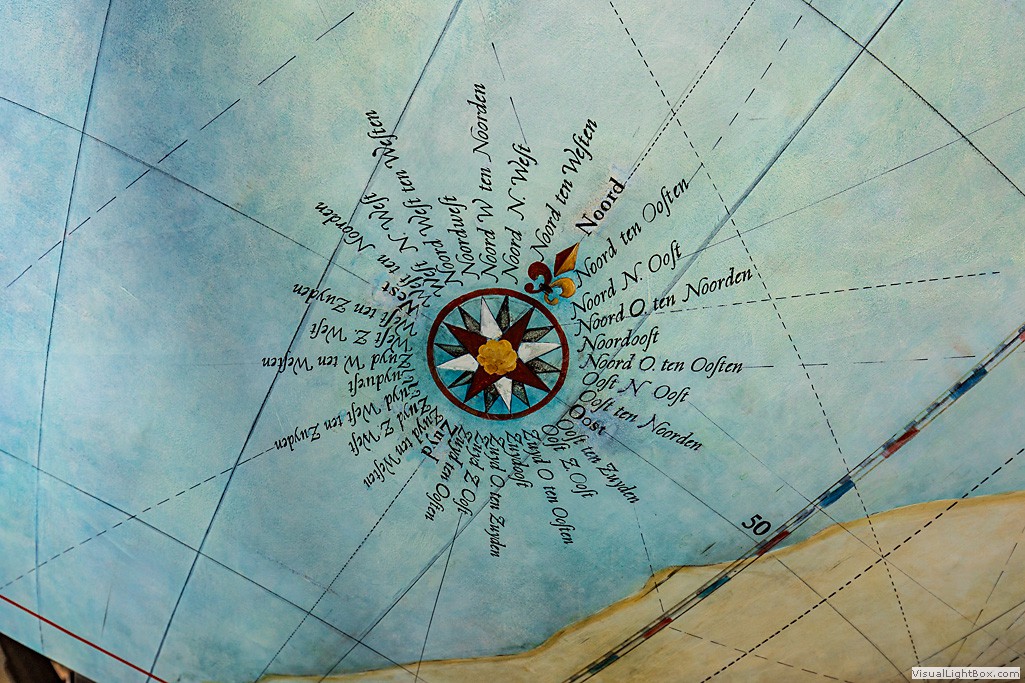 Noord
Noord ten Ooſten
Noord N. Ooſt
Noord O. ten Noorden
Noordooſt
Noord O. ten Ooſten
Ooſt N. Ooſt
Ooſt ten Noorden
Oost
Ooſt ten Zuyden
Ooſt Z. Ooſt
Zuyd O. ten Ooſten
Zuydooſt
Zuyd O. ten Zuyden
Zuyd Z. Ooſt
Zuyd ten Ooſten
Zuyd
Zuyd ten Weſten
Zuyd Z. Weſt
Zuyd Weſt ten Zuyden
Zuydweſt
Zuyd W. ten Weſten
Weſt Z. Weſt
Weſt ten Zuyden
West
Weſt ten Noorden
Weſt N. Weſt
Noord Weſt ten Weſten
Noordweſt
Noord W ten Noorden
Noord N. Weſt
Noord ten Weſten
50
VisualLightBox.com